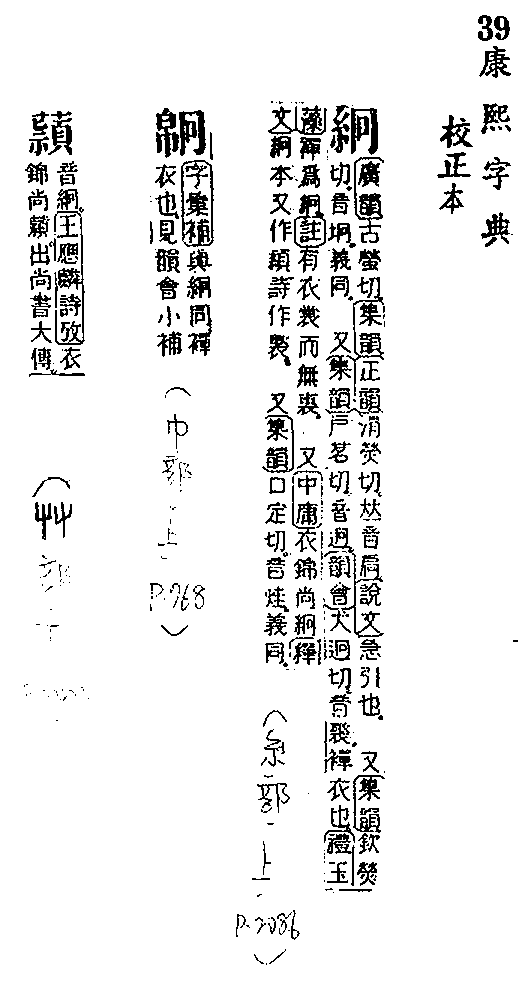 39 康熙字典
校正本
絅
廣韻古螢切集韻正韻涓熒切𠀤音扃說文急引也 又集韻欽熒
切音坰義同 又集韻戶茗切音迥韻會犬迥切音褧襌衣也禮玉
藻襌爲絅註有衣裳而無裏 又中庸衣錦尚絅釋
文絅本又作顈詩作褧 又集韻口定切音烓義同
(糸部-上-
P.2086)
字彙補與絅同襌
衣也見韻會小補
(巾部-上-
P.768)
音絅王應麟詩攷衣
錦尚蘏出尚書大傳
(艸部-